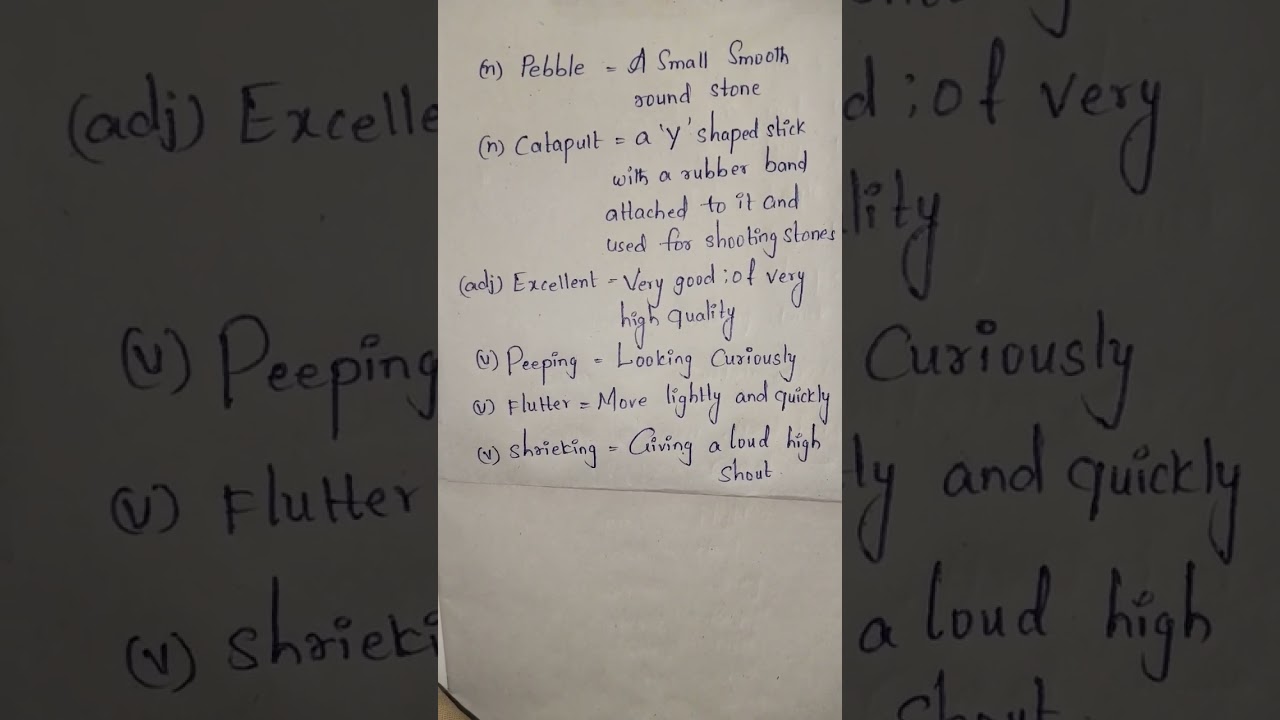 (n) Pebble = A Small Smooth
round stone
(n) Catapult = a 'Y' shaped stick
with a rubber band
attached to it and
used for shooting stones
(adj) Excellent = Very good ; of very
high quality
(v) Peeping = Looking Curiously
(v) Flutter = Move lightly and quickly
(v) Shrieking = Giving a loud high
Shout.